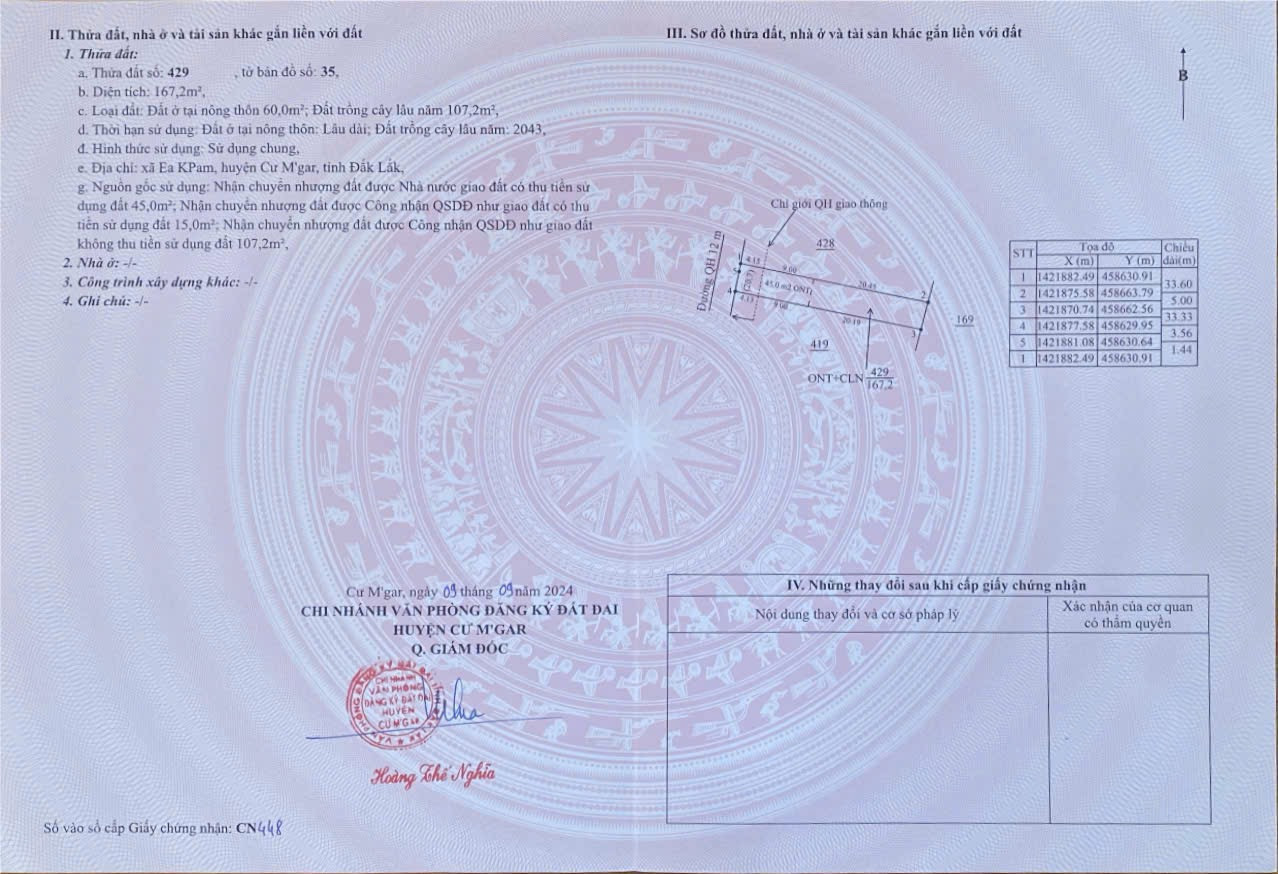 II. Thửa đất, nhà ở và tài sản khác gắn liền với đất
1. Thửa đất:
a. Thửa đất số: 429 , tờ bản đồ số: 35,
b. Diện tích: 167,2m²,
c. Loại đất: Đất ở tại nông thôn 60,0m²; Đất trồng cây lâu năm 107,2m²,
d. Thời hạn sử dụng: Đất ở tại nông thôn: Lâu dài; Đất trồng cây lâu năm: 2043,
đ. Hình thức sử dụng: Sử dụng chung,
e. Địa chỉ: xã Ea KPam, huyện Cư M'gar, tỉnh Đắk Lắk,
g. Nguồn gốc sử dụng: Nhận chuyển nhượng đất được Nhà nước giao đất có thu tiền sử
dụng đất 45,0m²; Nhận chuyển nhượng đất được Công nhận QSDĐ như giao đất có thu
tiền sử dụng đất 15,0m²; Nhận chuyển nhượng đất được Công nhận QSDĐ như giao đất
không thu tiền sử dụng đất 107,2m²,
2. Nhà ở: -/-
3. Công trình xây dựng khác: -/-
4. Ghi chú: -/-
Cư M'gar, ngày 09 tháng 09 năm 2024
CHI NHÁNH VĂN PHÒNG ĐĂNG KÝ ĐẤT ĐAI
HUYỆN CƯ M'GAR
Q. GIÁM ĐỐC
CHI NHÁNH
VĂN PHÒNG
ĐĂNG KÝ ĐẤT ĐAI
HUYỆN
CƯ M'GAR
Hoàng Thế Nghĩa
Số vào sổ cấp Giấy chứng nhận: CN448
III. Sơ đồ thửa đất, nhà ở và tài sản khác gắn liền với đất
B
Chỉ giới QH giao thông
428
Đường QH 12 m
5 4.13 9.00 20.45 2
(20,7) 45.0 m2 ONT
4 4.13 9.00 20.19 3
169
419
ONT+CLN 429
167,2
STT Tọa độ Chiều
X (m) Y (m) dài(m)
1 1421882.49 458630.91
33.60
2 1421875.58 458663.79
5.00
3 1421870.74 458662.56
33.33
4 1421877.58 458629.95
3.56
5 1421881.08 458630.64
1.44
1 1421882.49 458630.91
IV. Những thay đổi sau khi cấp giấy chứng nhận
Nội dung thay đổi và cơ sở pháp lý
Xác nhận của cơ quan
có thẩm quyền